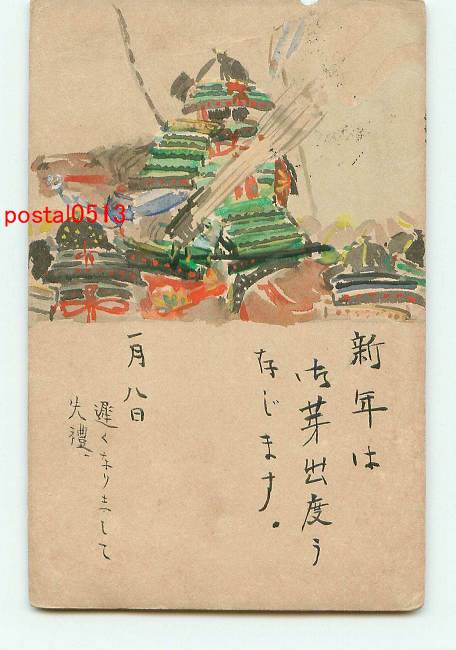 新年は
御芽出度う
存じます。
一月八日
遅くなりまして
失禮
postal0513